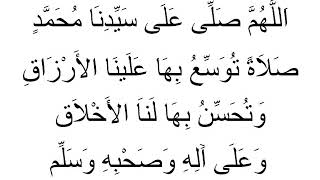 اللَّهُمَّ صَلِّى عَلَى سَيِّدِنَا مُحَمَّدٍ
صَلاَةً تُوَسِّعُ بِهَا عَلَينَا الأَرْزَاقِ
وَتُحَسِّنُ بِهَا لَنَا الأَخْلاَق
وَعَلَى آلِهِ وَصَحْبِهِ وَسَلِّم